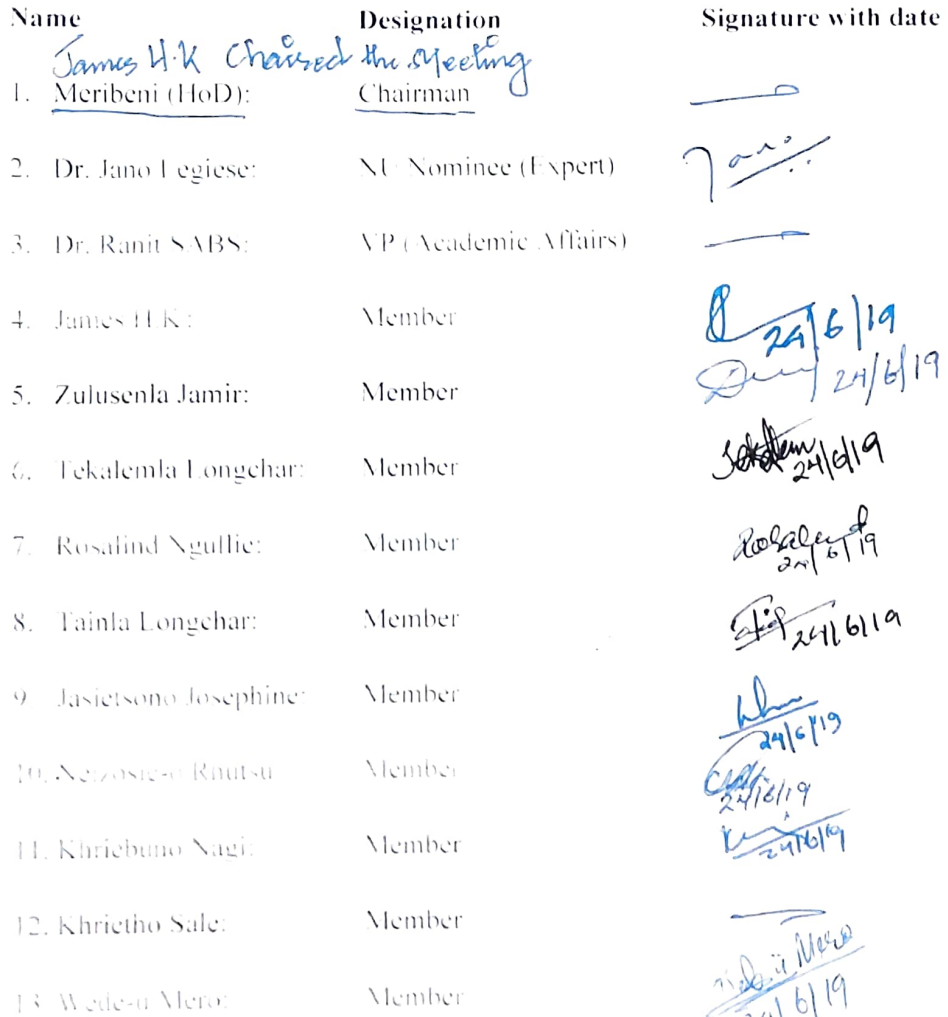 Name Designation Signature with date
James H.K Chaired the Meeting
1. Meribeni (HoD): Chairman
2. Dr. Jano Legiese: NU Nominee (Expert) Jano
3. Dr. Ranit SABS: VP (Academic Affairs)
4. James H.K: Member 24/6/19
5. Zulusenla Jamir: Member 24/6/19
6. Tekalemla Longchar: Member 24/6/19
7. Rosalind Ngullie: Member Rosalind 24/6/19
8. Tainla Longchar: Member 24/6/19
9. Jasietsono Josephine: Member 24/6/19
10. Member 24/6/19
11. Khriebuno Nagi: Member 24/6/19
12. Khrietho Sale: Member
13. Wede-u Mero: Member Mero 24/6/19